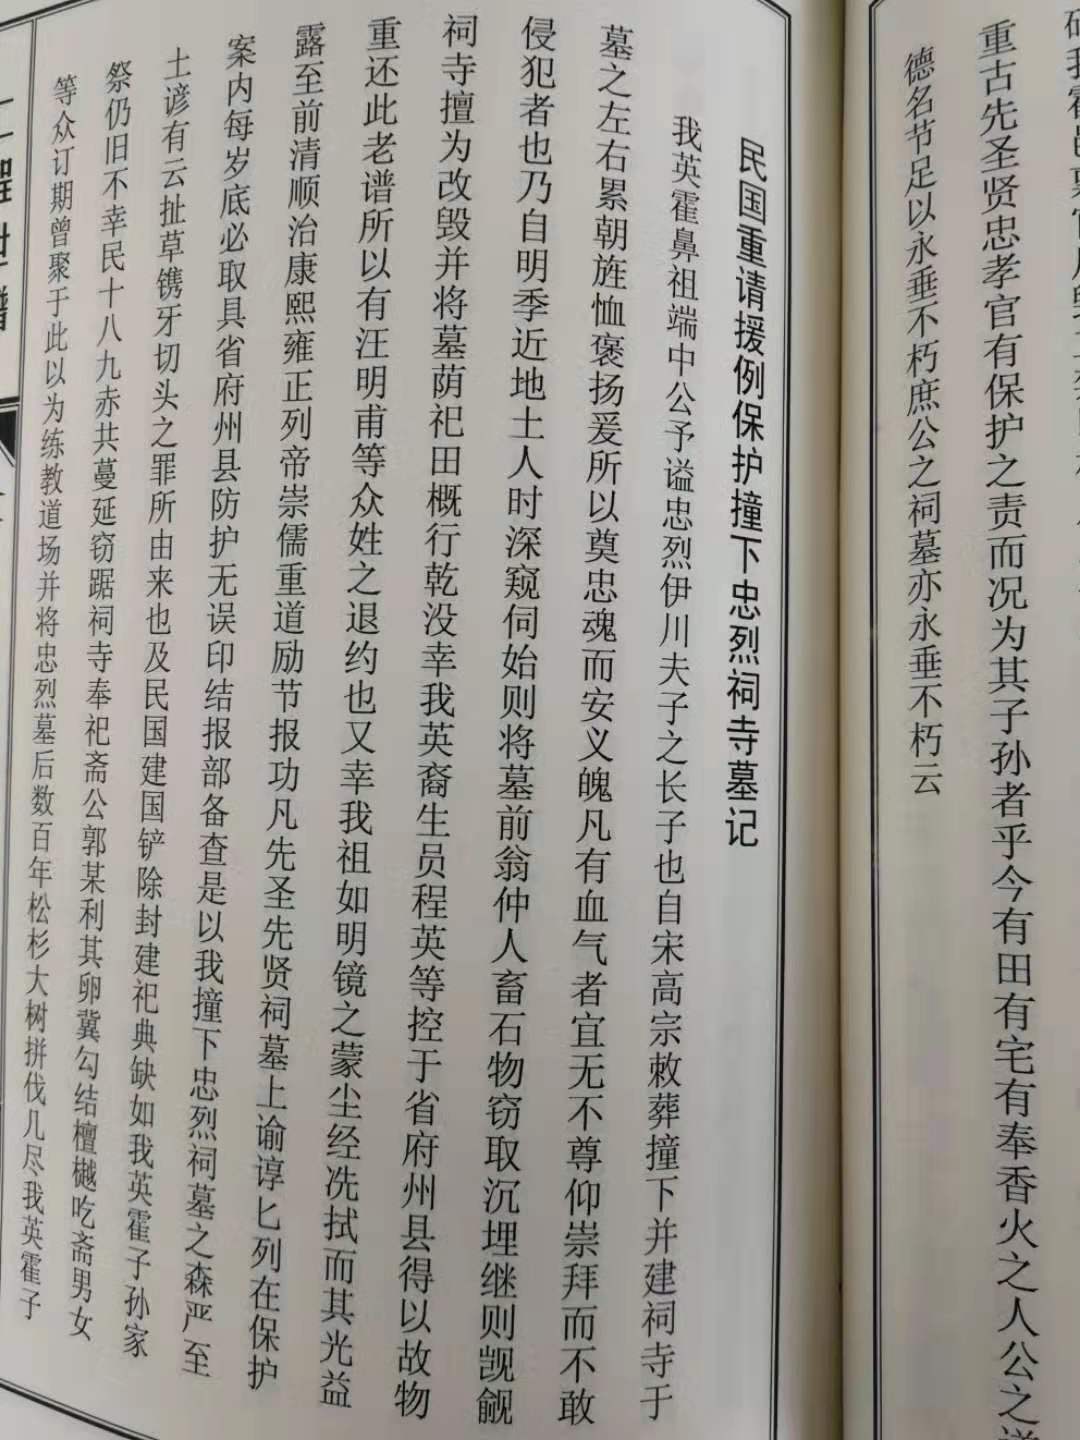 重古先圣贤忠孝官有保护之责而况为其子孙者乎今有田有宅有奉香火之人公之
德名节足以永垂不朽庶公之祠墓亦永垂不朽云
民国重请援例保护撞下忠烈祠寺墓记
我英霍鼻祖端中公予谥忠烈伊川夫子之长子也自宋高宗敕葬撞下并建祠寺于
墓之左右累朝旌恤褒扬爰所以奠忠魂而安义魄凡有血气者宜无不尊仰崇拜而不敢
侵犯者也乃自明季近地土人时深窥伺始则将墓前翁仲人畜石物窃取沉埋继则觊觎
祠寺擅为改毁并将墓荫祀田概行乾没幸我英裔生员程英等控于省府州县得以故物
重还此老谱所以有汪明甫等众姓之退约也又幸我祖如明镜之蒙尘经冼拭而其光益
露至前清顺治康熙雍正列帝崇儒重道励节报功凡先圣先贤祠墓上谕谆匕列在保护
案内每岁底必取具省府州县防护无误印结报部备查是以我撞下忠烈祠墓之森严至
土谚有云扯草镌牙切头之罪所由来也及民国建国铲除封建祀典缺如我英霍子孙家
祭仍旧不幸民十八九赤共蔓延窃踞祠寺奉祀斋公郭某利其卵冀勾结檀樾吃斋男女
等众订期曾聚于此以为练教道场并将忠烈墓后数百年松杉大树拼伐几尽我英霍子